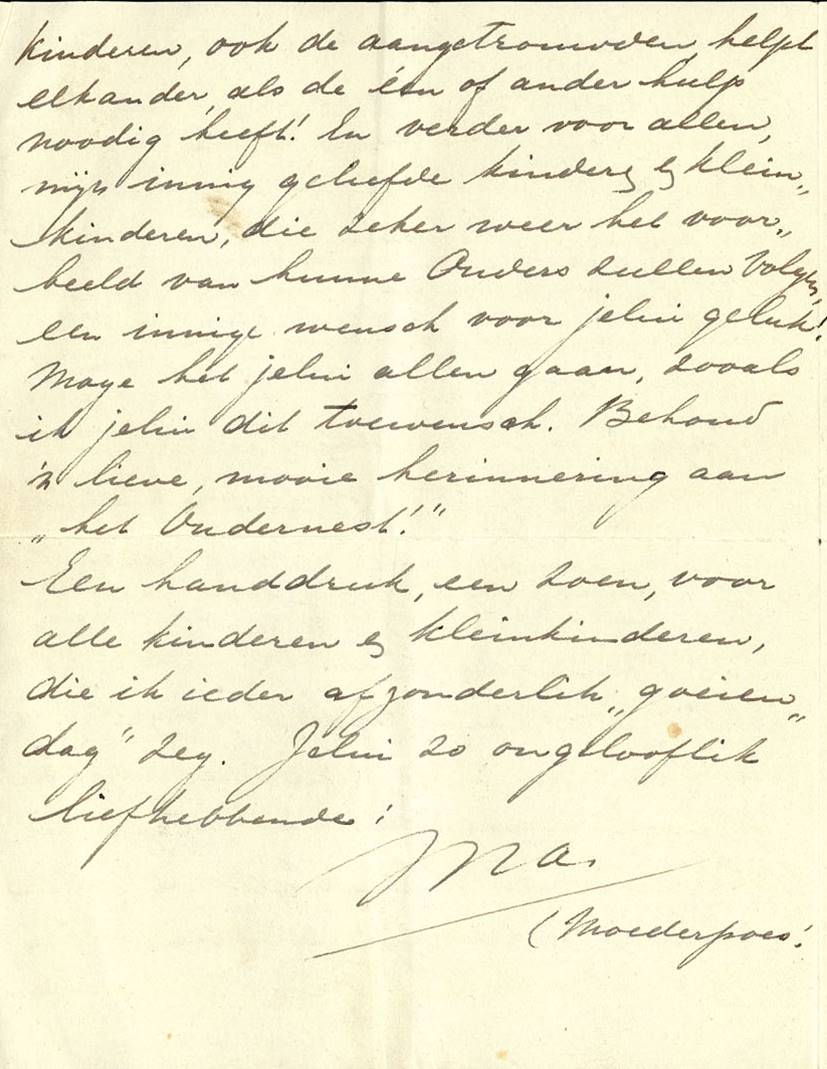 kinderen, ook de aangetrouwden, helpt
elkander, als de één of ander hulp
noodig heeft! En verder voor allen,
mijn innig geliefde kinders en klein„
kinderen, die zeker weer het voor„
beeld van hunne Ouders zullen volgen,
een innige wensch voor jelui geluk!
Moge het jelui allen gaan, zooals
ik jelui dit toewensch. Behoud
'n lieve, mooie herinnering aan
„het Oudernest!"
Een handdruk, een zoen, voor
alle kinderen en kleinkinderen,
die ik ieder afzonderlik „goeien„
dag" zeg. Jelui zo ongelooflik
liefhebbende:
Ma.
(Moederpoes!